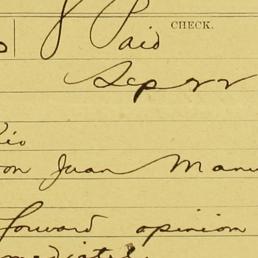 8 Paid
CHECK.
Sep 22
on Juan Manu
forward opinion
mediately